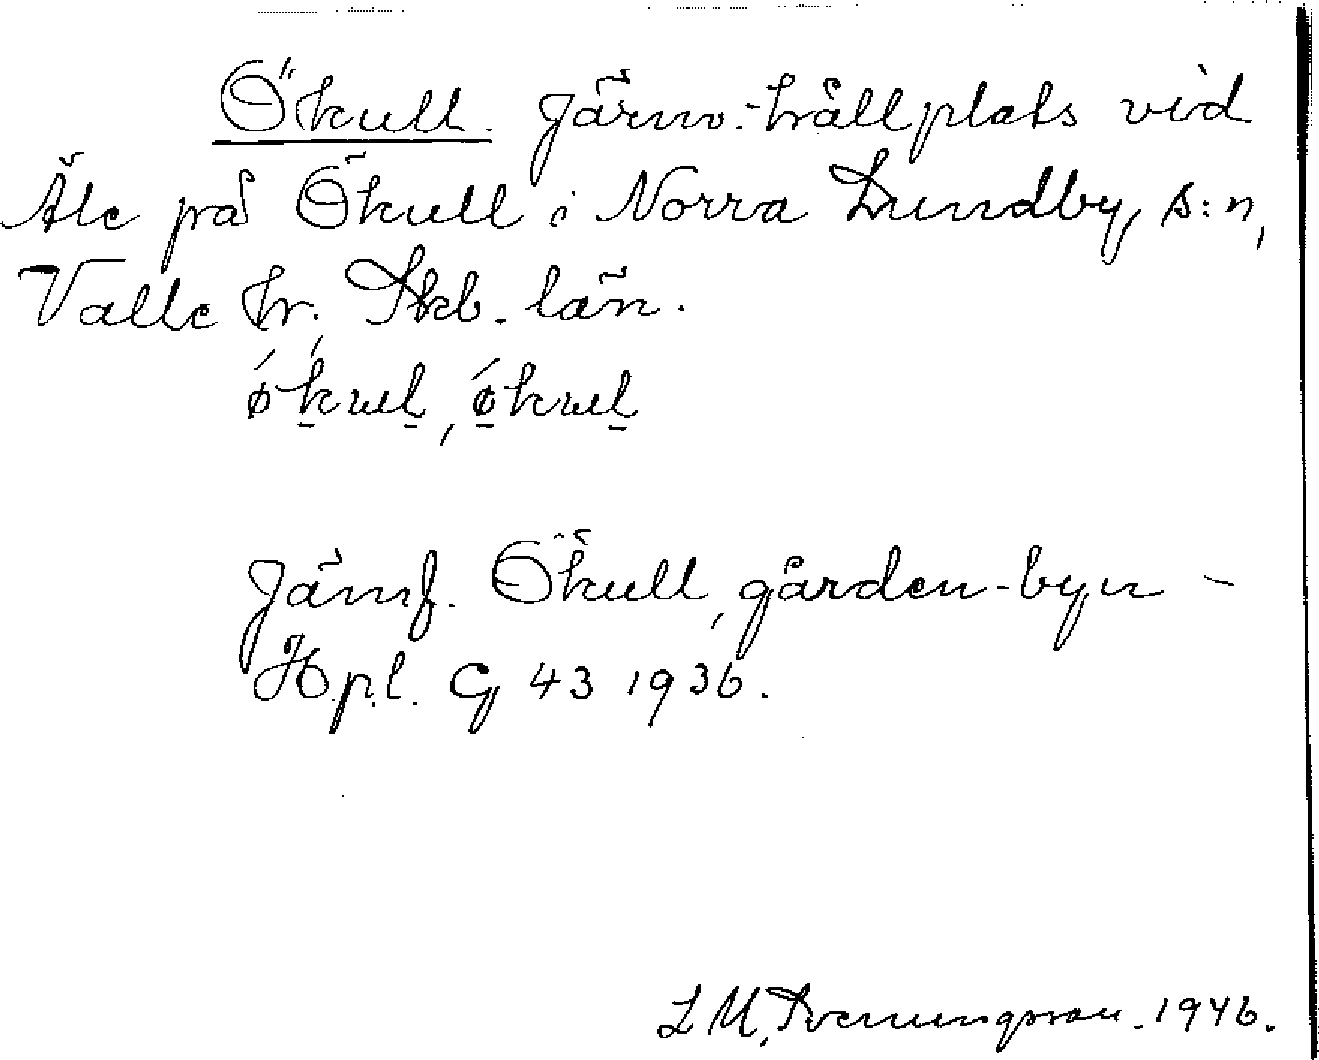 Ökull. Järnv.-hållplats vid
Äle på Ökull i Norra Lundby, s:n,
Valle hr. Skb. län.
ó̷kuḻ, ó̷kuḻ
Jämf. Ökull, gården-byn -
Hpl. G 43 1936.
L M, Svenungsson. 1946.